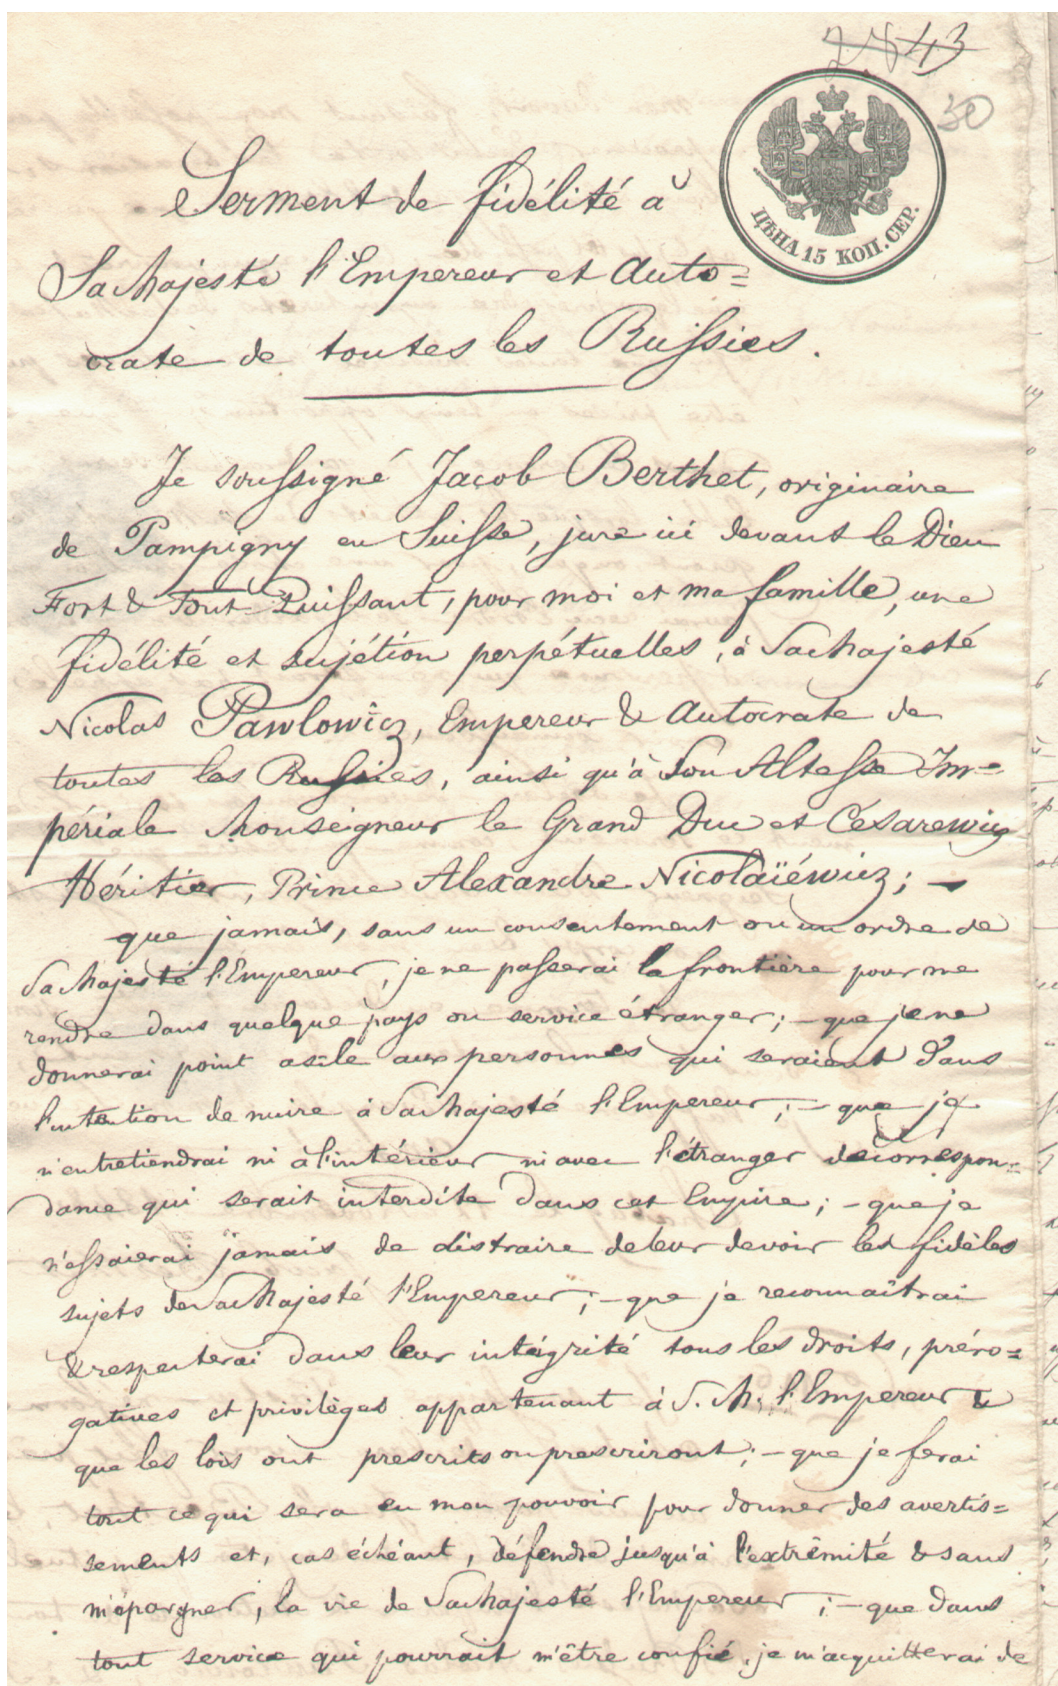 2843
30
ЦѢНА 15 КОП. СЕР.
Serment de fidélité à
Sa Majesté l'Empereur et Auto=
crate de toutes les Russies.
Je soussigné Jacob Berthet, originaire
de Pampigny en Suisse, jure ici devant le Dieu
Fort & Tout-Puissant, pour moi et ma famille, une
fidélité et sujétion perpétuelles, à Sa Majesté
Nicolas Pawlowicz, Empereur & Autocrate de
toutes les Russies, ainsi qu'à Son Altesse Im=
périale Monseigneur le Grand Duc et Césarewicz
Héritier, Prince Alexandre Nicolaïéwicz; —
que jamais, sans un consentement ou un ordre de
Sa Majesté l'Empereur, je ne passerai la frontière pour me
rendre dans quelque pays ou service étranger; — que je ne
donnerai point asile aux personnes qui seraient dans
l'intention de nuire à Sa Majesté l'Empereur; — que je
n'entretiendrai ni à l'intérieur ni avec l'étranger de correspon=
dance qui serait interdite dans cet Empire; — que je
n'essaierai jamais de distraire de leur devoir les fidèles
sujets de Sa Majesté l'Empereur; — que je reconnaîtrai
& respecterai dans leur intégrité tous les droits, préro=
gatives et privilèges appartenant à S. M. l'Empereur &
que les lois ont prescrits ou prescriront; — que je ferai
tout ce qui sera en mon pouvoir pour donner des avertis=
sements et, cas échéant, défendre jusqu'à l'extrêmité & sans
m'épargner, la vie de Sa Majesté l'Empereur; — que dans
tout service qui pourrait m'être confié, je m'acquitterai de